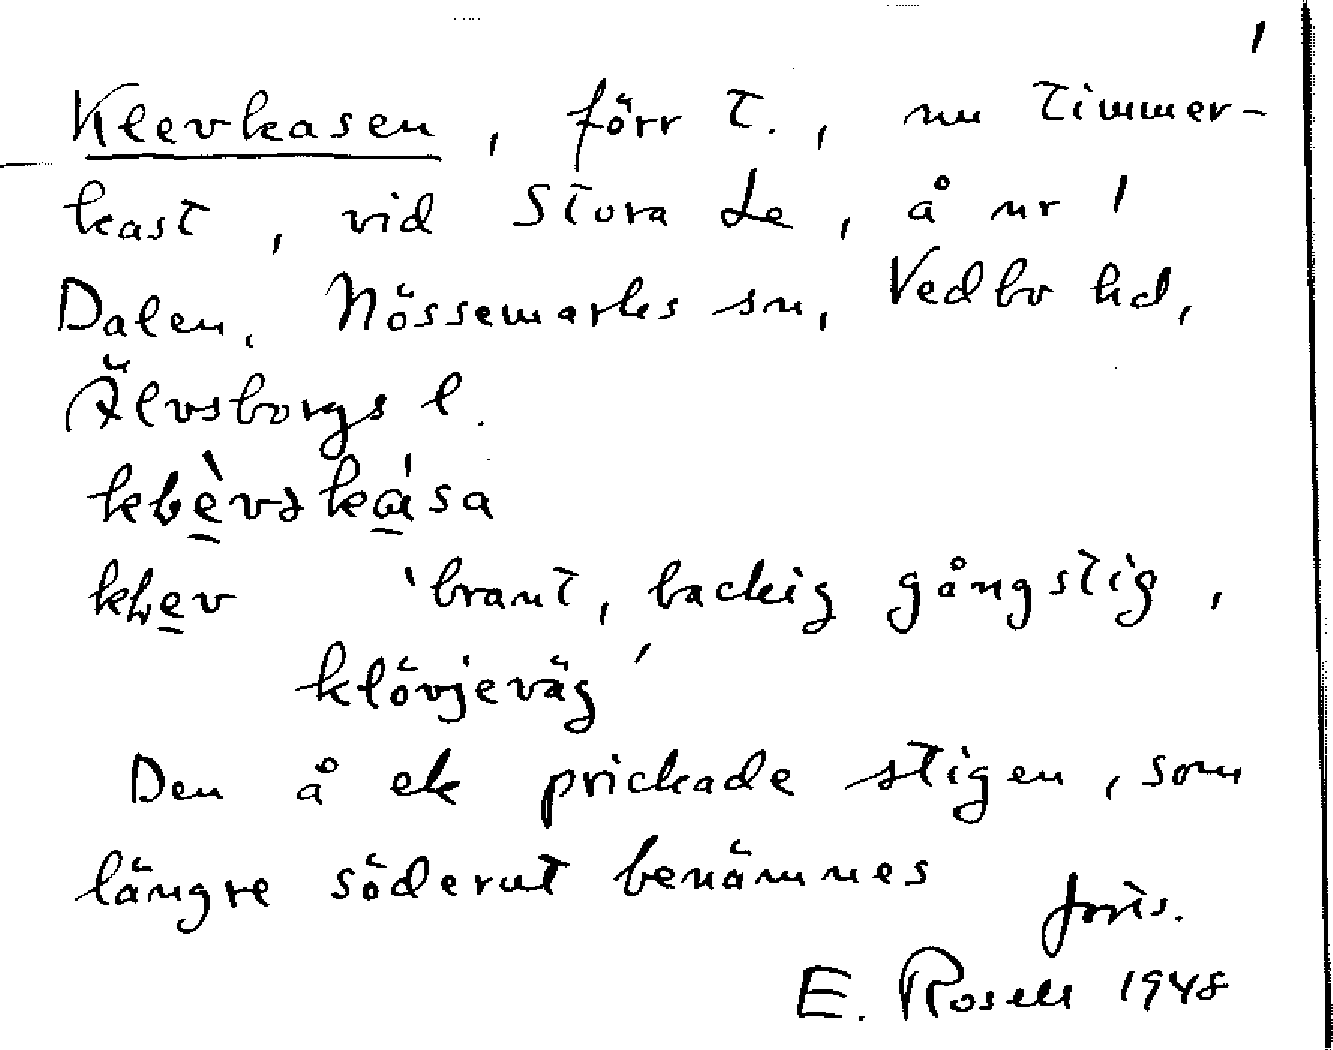 1
Klevkasen, förr t., nu timmer-
kast, vid Stora Le, å nr 1
Dalen, Nössemarks sn, Vedbo hd,
Älvsborgs l.
kḷèvəkása
kḷev 'brant, backig gångstig,
klövjeväg'
Den å ek prickade stigen, som
längre söderut benämnes
forts.
E. Rosell 1948